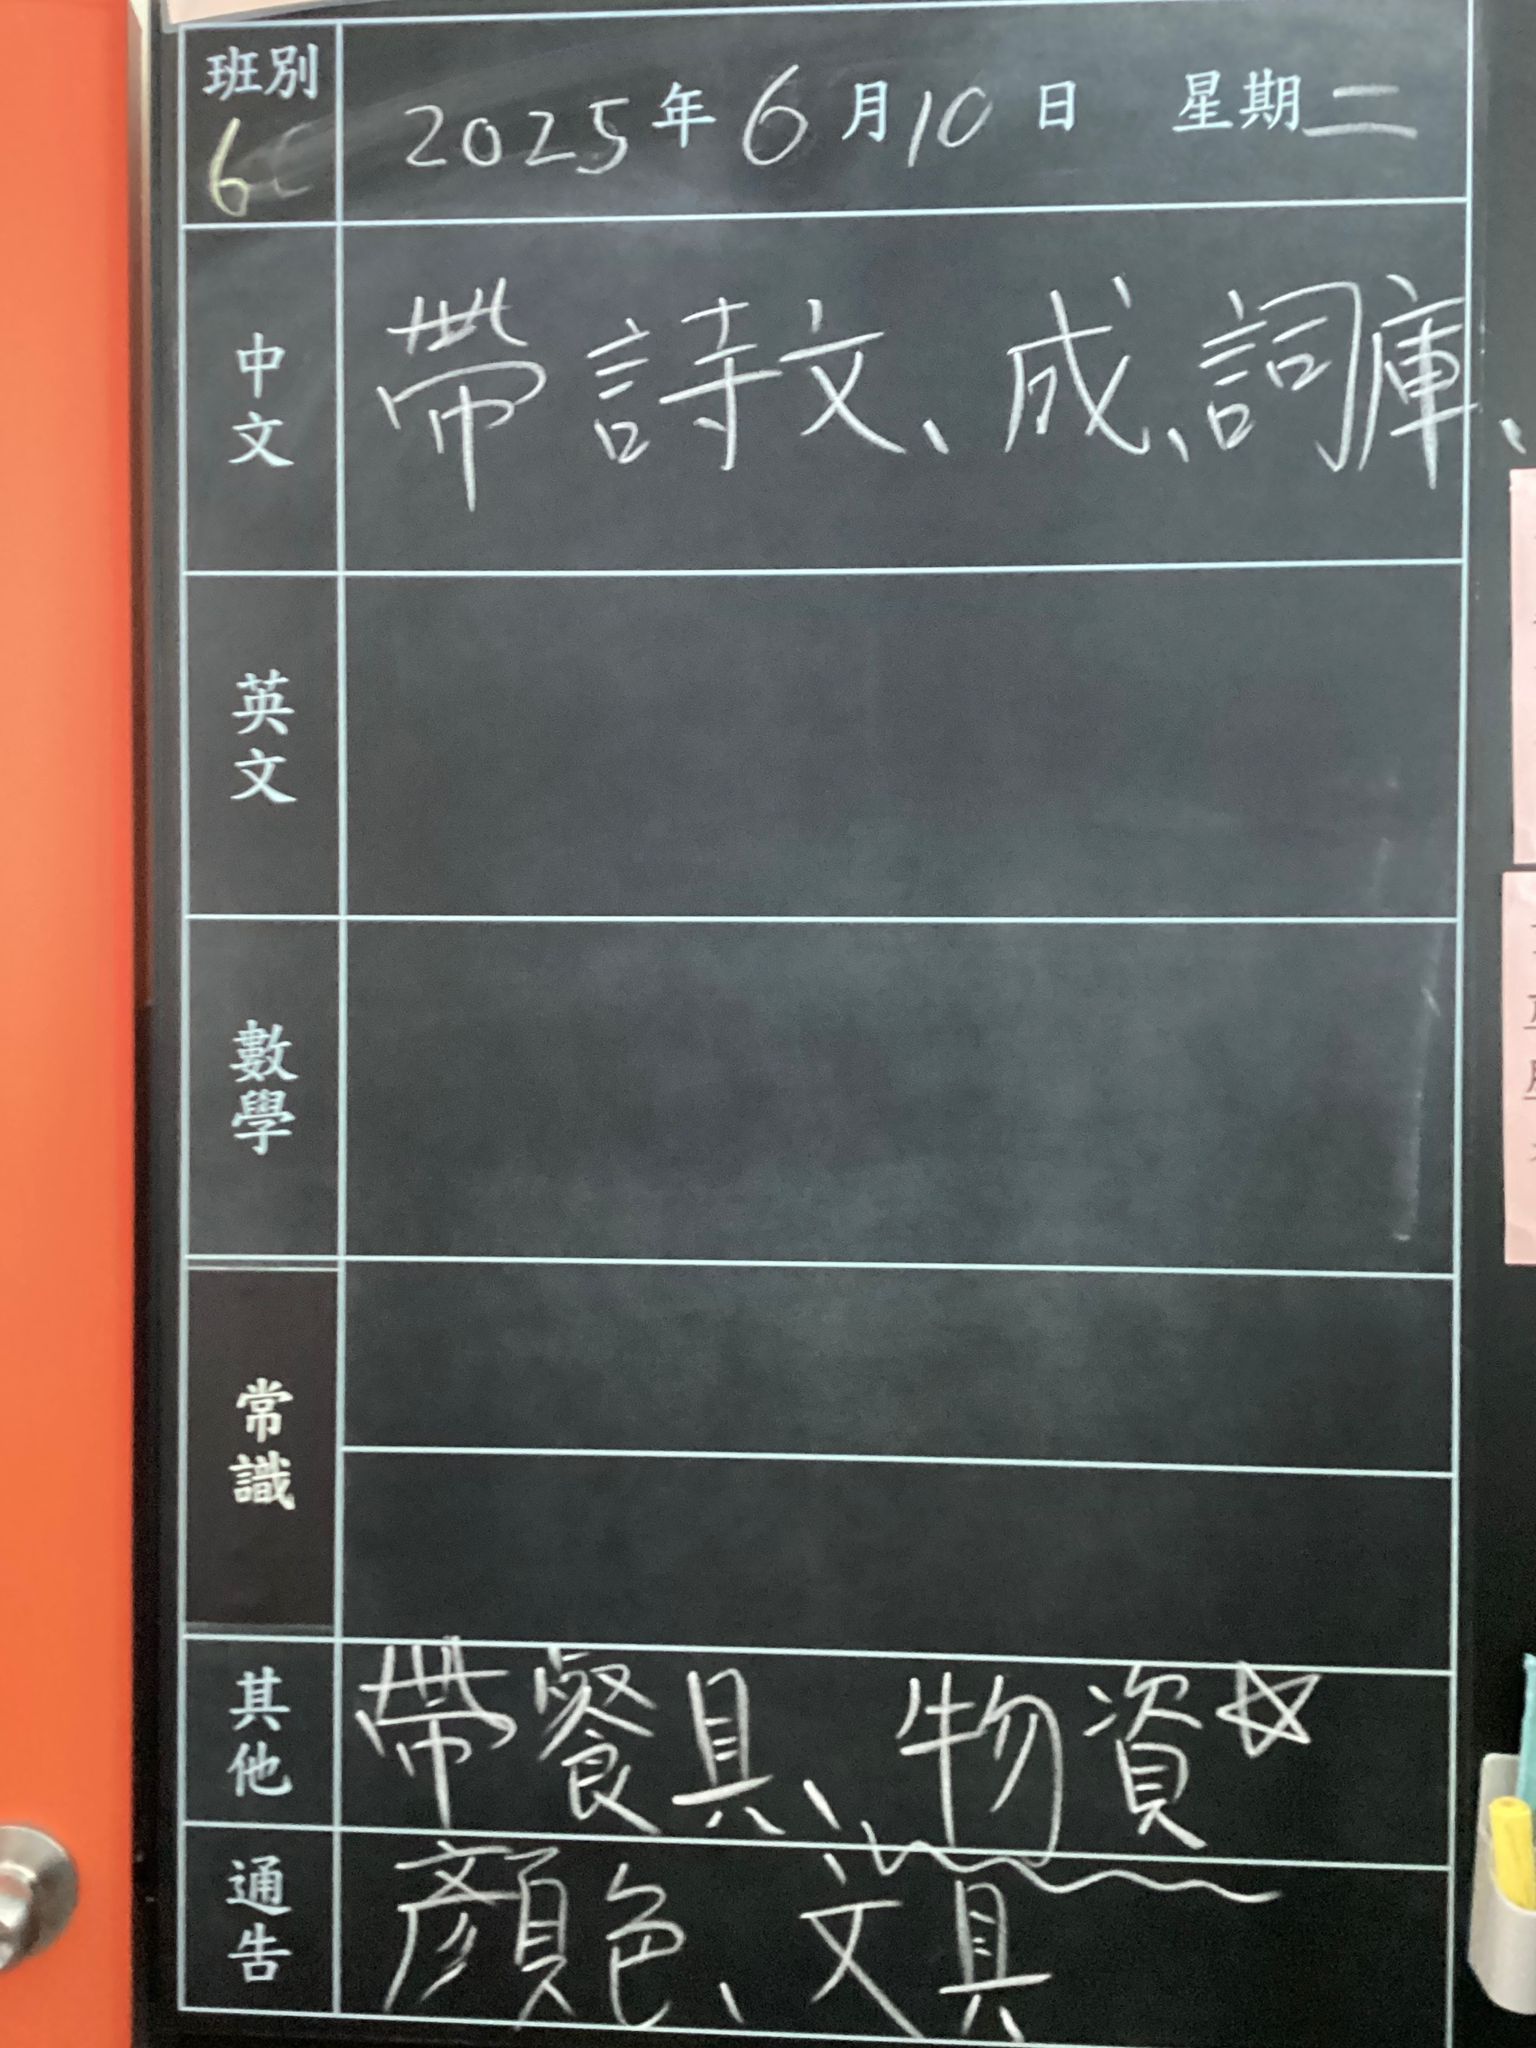 班別 2025年6月10日 星期二
6
中文 帶詩文、成、詞庫、
英文
數學
常識
其他 帶餐具、物資☆
通告 顏色、文具